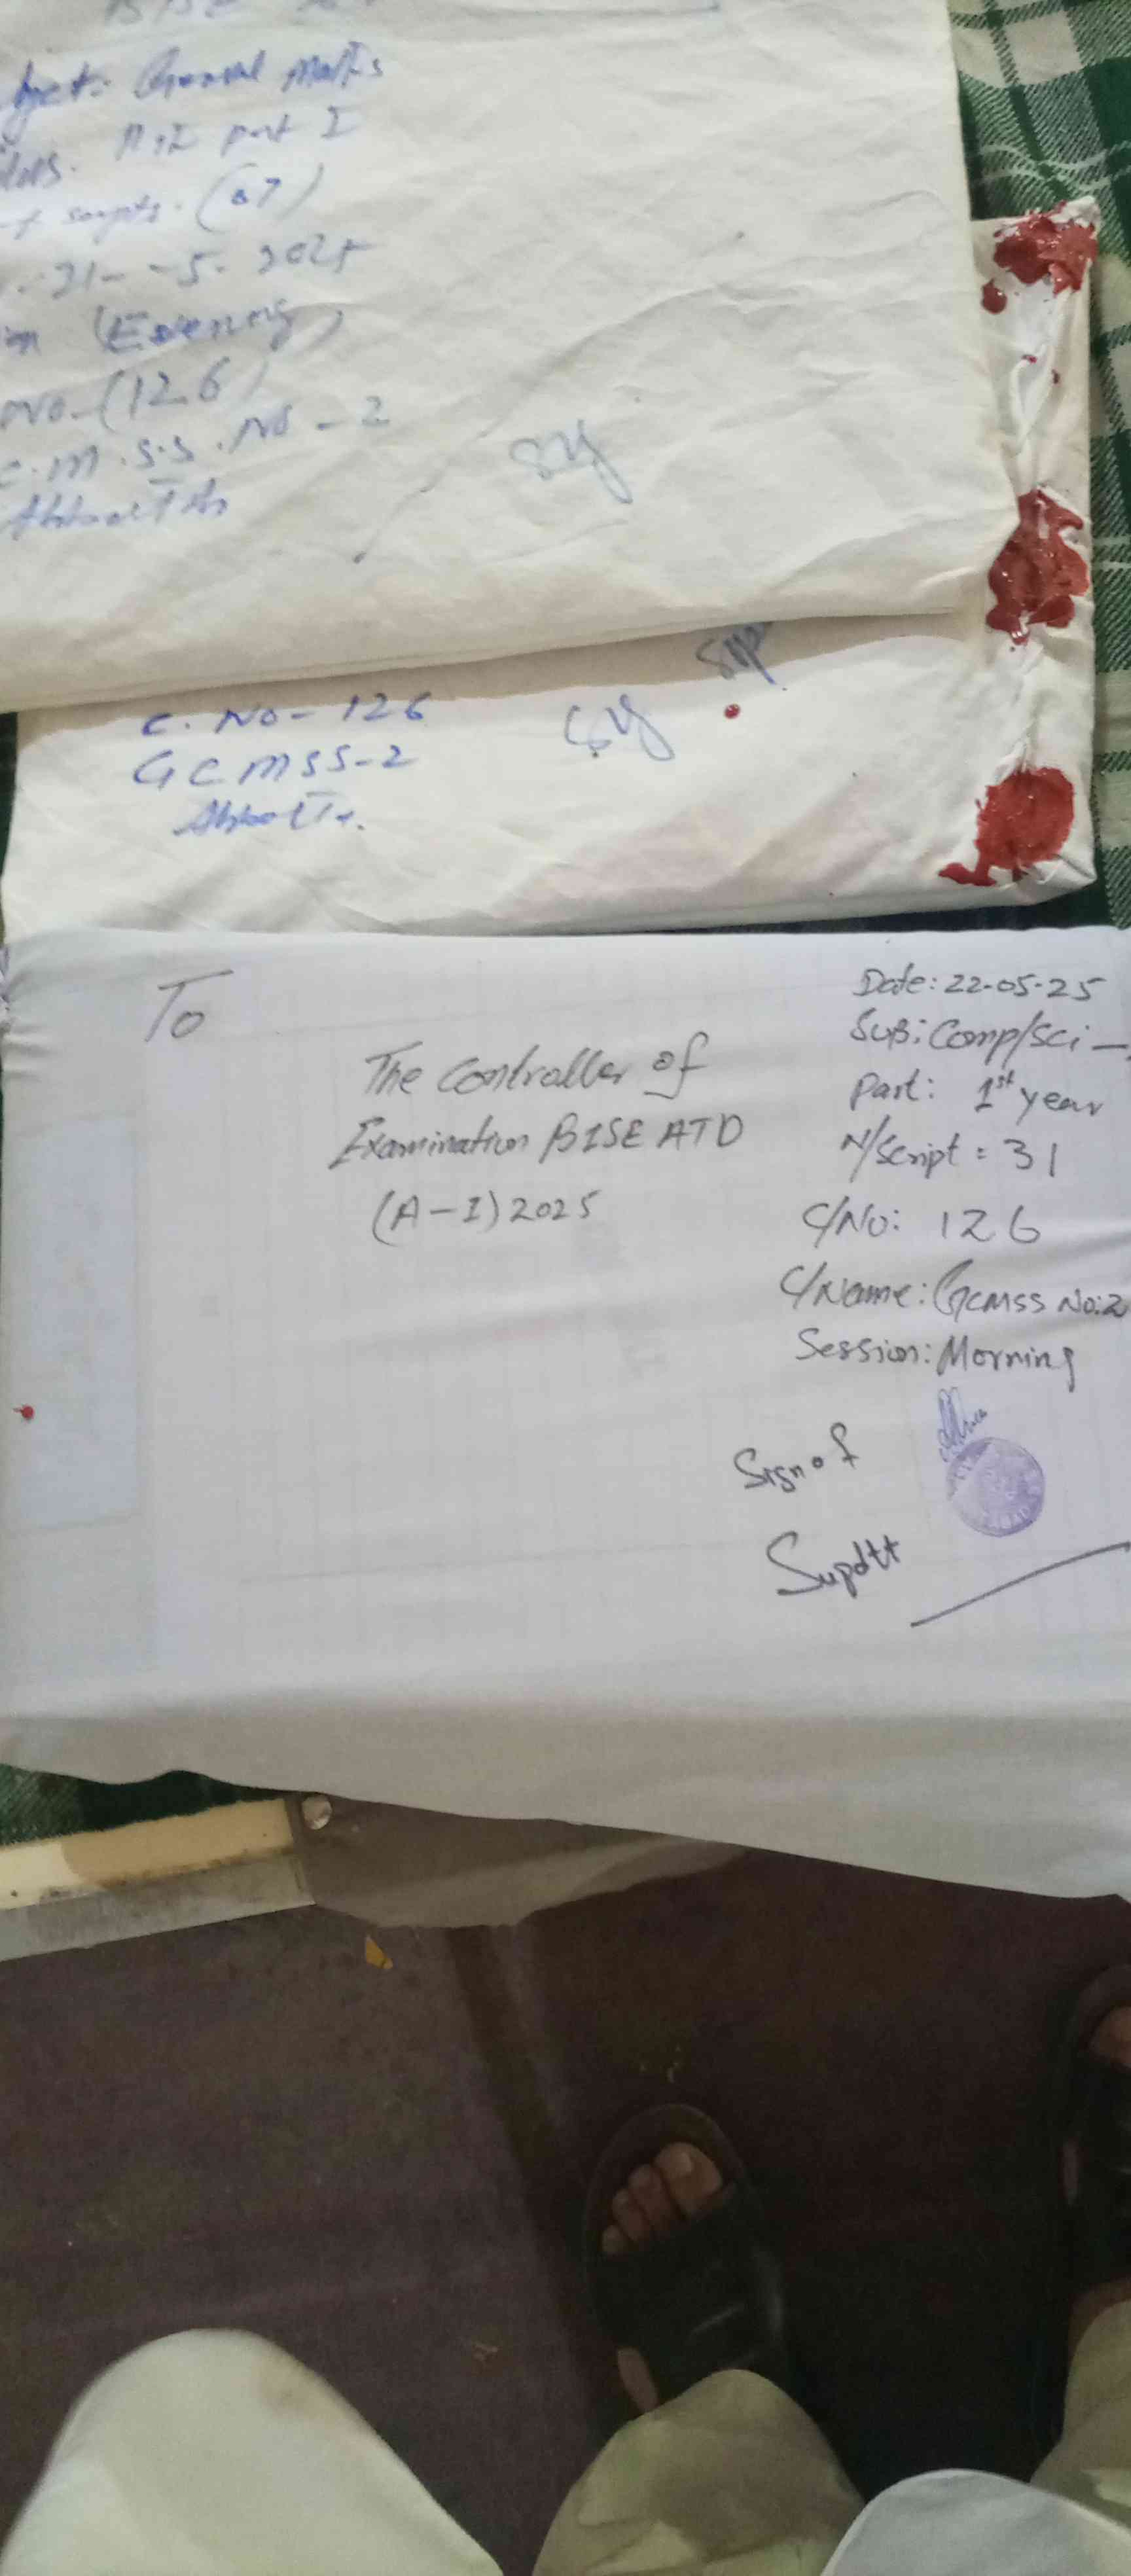 General Maths
A-I part I
scripts. (67)
21--5-2025
(Evening)
(126)
C.M.S.S. No-2
C. No- 126
GCMSS-2
To
The Controller of
Examination BISE ATD
(A-I) 2025
Date: 22-05-25
Sub: Comp/Sci -
Part: 1st year
N/Script = 31
C/No: 126
C/Name: GCMSS No:2
Session: Morning
Sign of
Supdtt